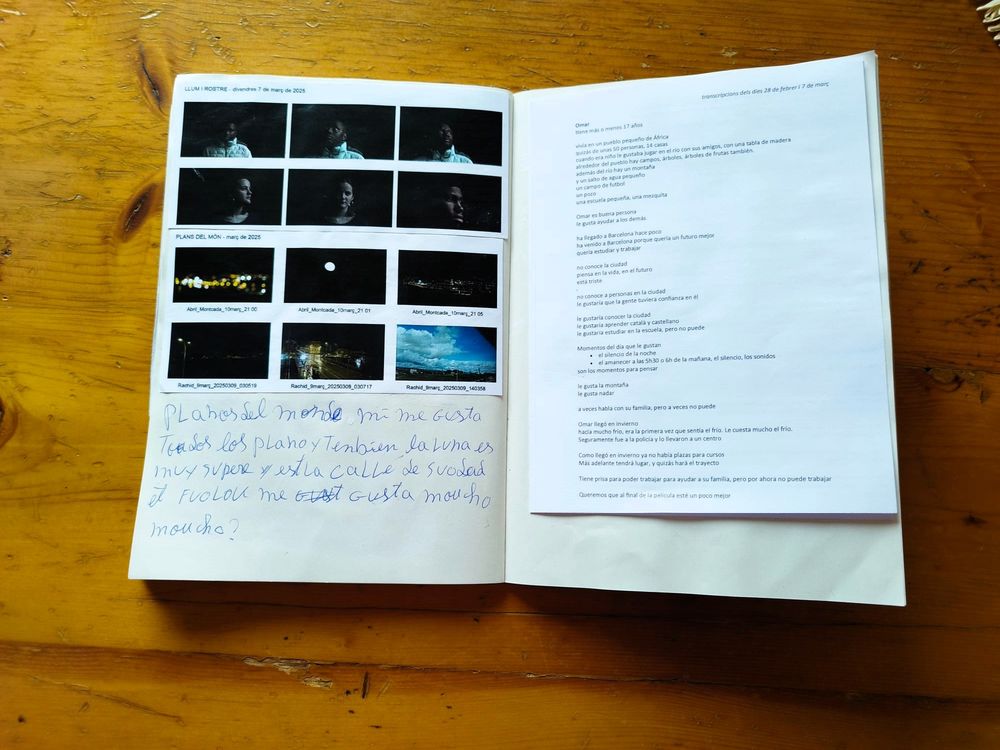 LLUM I ROSTRE - divendres 7 de març de 2025
PLANS DEL MÓN - març de 2025
Abril_Montcada_10març_21 00
Abril_Montcada_10març_21 01
Abril_Montcada_10març_21 05
Rachid_9març_20250309_030519
Rachid_9març_20250309_030717
Rachid_9març_20250309_140358
PLanos del monde, mi me Gusta
Todos los plano y Tenbien, la Luna es
muy supere y est La calle de
et me Gusta moucho
moucho?
transcripcions dels dies 28 de febrer i 7 de març
Omar
tiene más o menos 17 años
vivía en un pueblo pequeño de África
quizás de unas 50 personas, 14 casas
cuando era niño le gustaba jugar en el río con sus amigos, con una tabla de madera
alrededor del pueblo hay campos, árboles, árboles de frutas también.
además del río hay un montaña
y un salto de agua pequeño
un campo de futbol
un pozo
una escuela pequeña, una mezquita
Omar es buena persona
le gusta ayudar a los demás
ha llegado a Barcelona hace poco
ha venido a Barcelona porque quería un futuro mejor
quería estudiar y trabajar
no conoce la ciudad
piensa en la vida, en el futuro
está triste
no conoce a personas en la ciudad
le gustaría que la gente tuviera confianza en él
le gustaría conocer la ciudad
le gustaría aprender català y castellano
le gustaría estudiar en la escuela, pero no puede
Momentos del día que le gustan
• el silencio de la noche
• el amanecer a las 5h30 o 6h de la mañana, el silencio, los sonidos
son los momentos para pensar
le gusta la montaña
le gusta nadar
a veces habla con su familia, pero a veces no puede
Omar llegó en invierno
hacía mucho frío, era la primera vez que sentía el frío. Le cuesta mucho el frío.
Seguramente fue a la policía y lo llevaron a un centro
Como llegó en invierno ya no había plazas para cursos
Más adelante tendrá lugar, y quizás hará el trayecto
Tiene prisa para poder trabajar para ayudar a su familia, pero por ahora no puede trabajar
Queremos que al final de la película esté un poco mejor